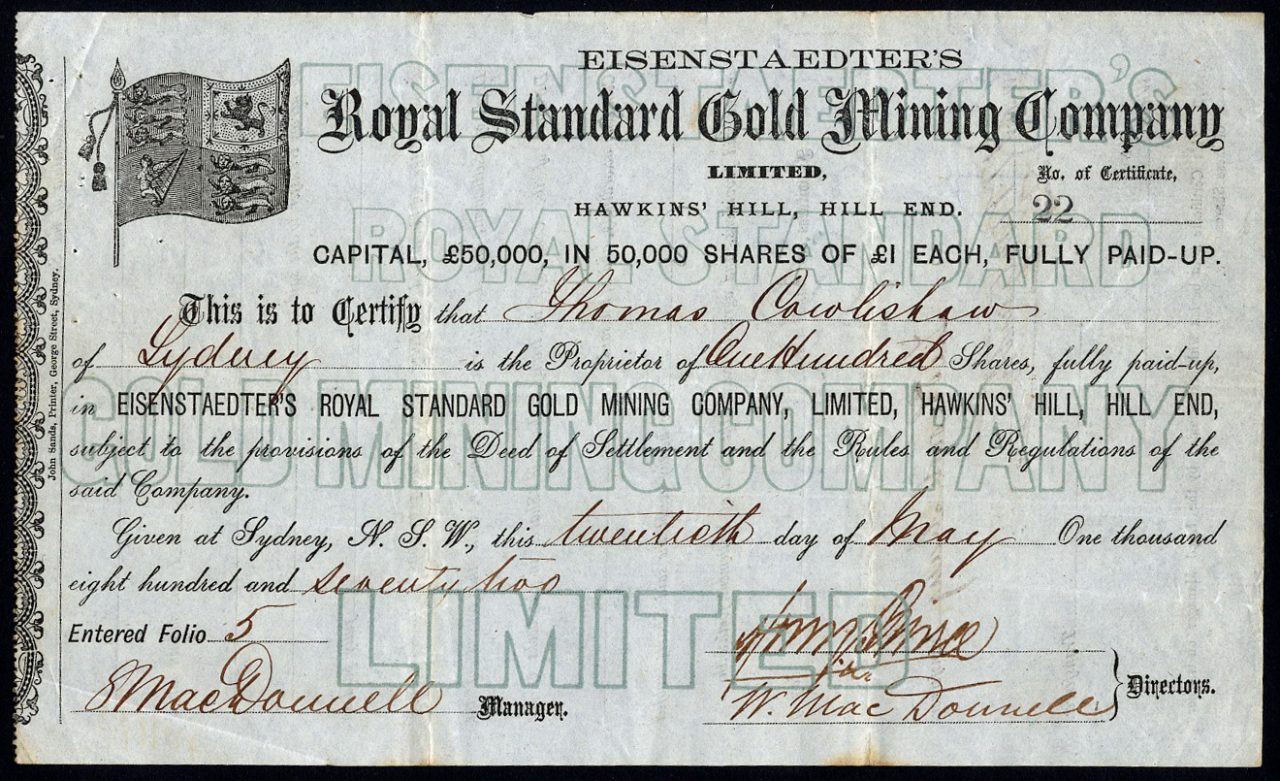 EISENSTAEDTER'S
Royal Standard Gold Mining Company
LIMITED,
No. of Certificate,
HAWKINS' HILL, HILL END.
22
CAPITAL, £50,000, IN 50,000 SHARES OF £1 EACH, FULLY PAID-UP.
This is to Certify that Thomas Cowlishaw
of Sydney is the Proprietor of One Hundred Shares, fully paid-up,
in EISENSTAEDTER'S ROYAL STANDARD GOLD MINING COMPANY, LIMITED, HAWKINS' HILL, HILL END,
subject to the provisions of the Deed of Settlement and the Rules and Regulations of the
said Company.
Given at Sydney, N. S. W., this twentieth day of May One thousand
eight hundred and seventy two
Entered Folio 5
MacDonnell Manager.
W. MacDonnell Directors.
John Sands, Printer, George Street, Sydney.
EISENSTAEDTER'S
ROYAL STANDARD
GOLD MINING COMPANY
LIMITED